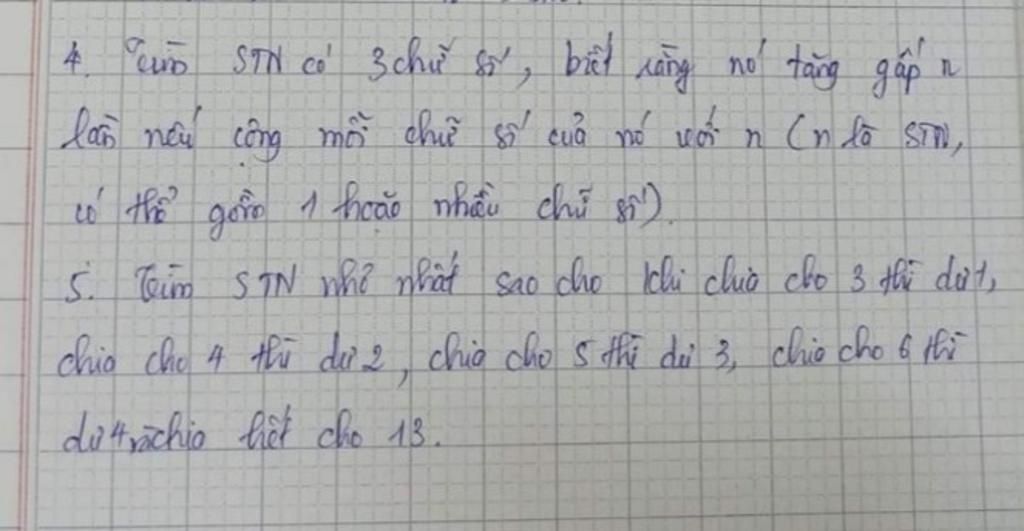 4. Tìm STN có 3 chữ số, biết rằng nó tăng gấp n
lần nếu cộng mỗi chữ số của nó với n (n là STN,
có thể gồm 1 hoặc nhiều chữ số).
5. Tìm STN nhỏ nhất sao cho khi chia cho 3 thì dư 1,
chia cho 4 thì dư 2, chia cho 5 thì dư 3, chia cho 6 thì
dư 4 và chia hết cho 13.